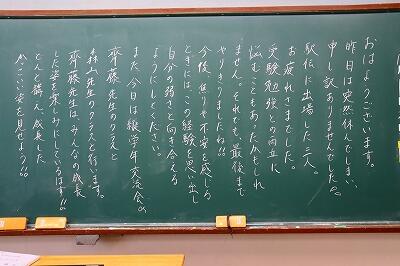 おはようございます。
昨日は突然休んでしまい、
申し訳ありませんでした。
駅伝に出場した三人。
お疲れさまでした。
受験勉強との両立に
悩むこともあったかもしれ
ません。それでも最後まで
やりきりましたね!!
今後、焦りや不安を感じる
ときには、この経験を思い出し
自分の弱さと向き合える
ようにしてください。
また、今日は縦学年交流会。
齊藤先生のクラスと
森山先生のクラスと行います。
齊藤先生は、みんなの成長
した姿を楽しみにしているはず!!
どんと構え、成長した
かっこいい姿を見せよう!!